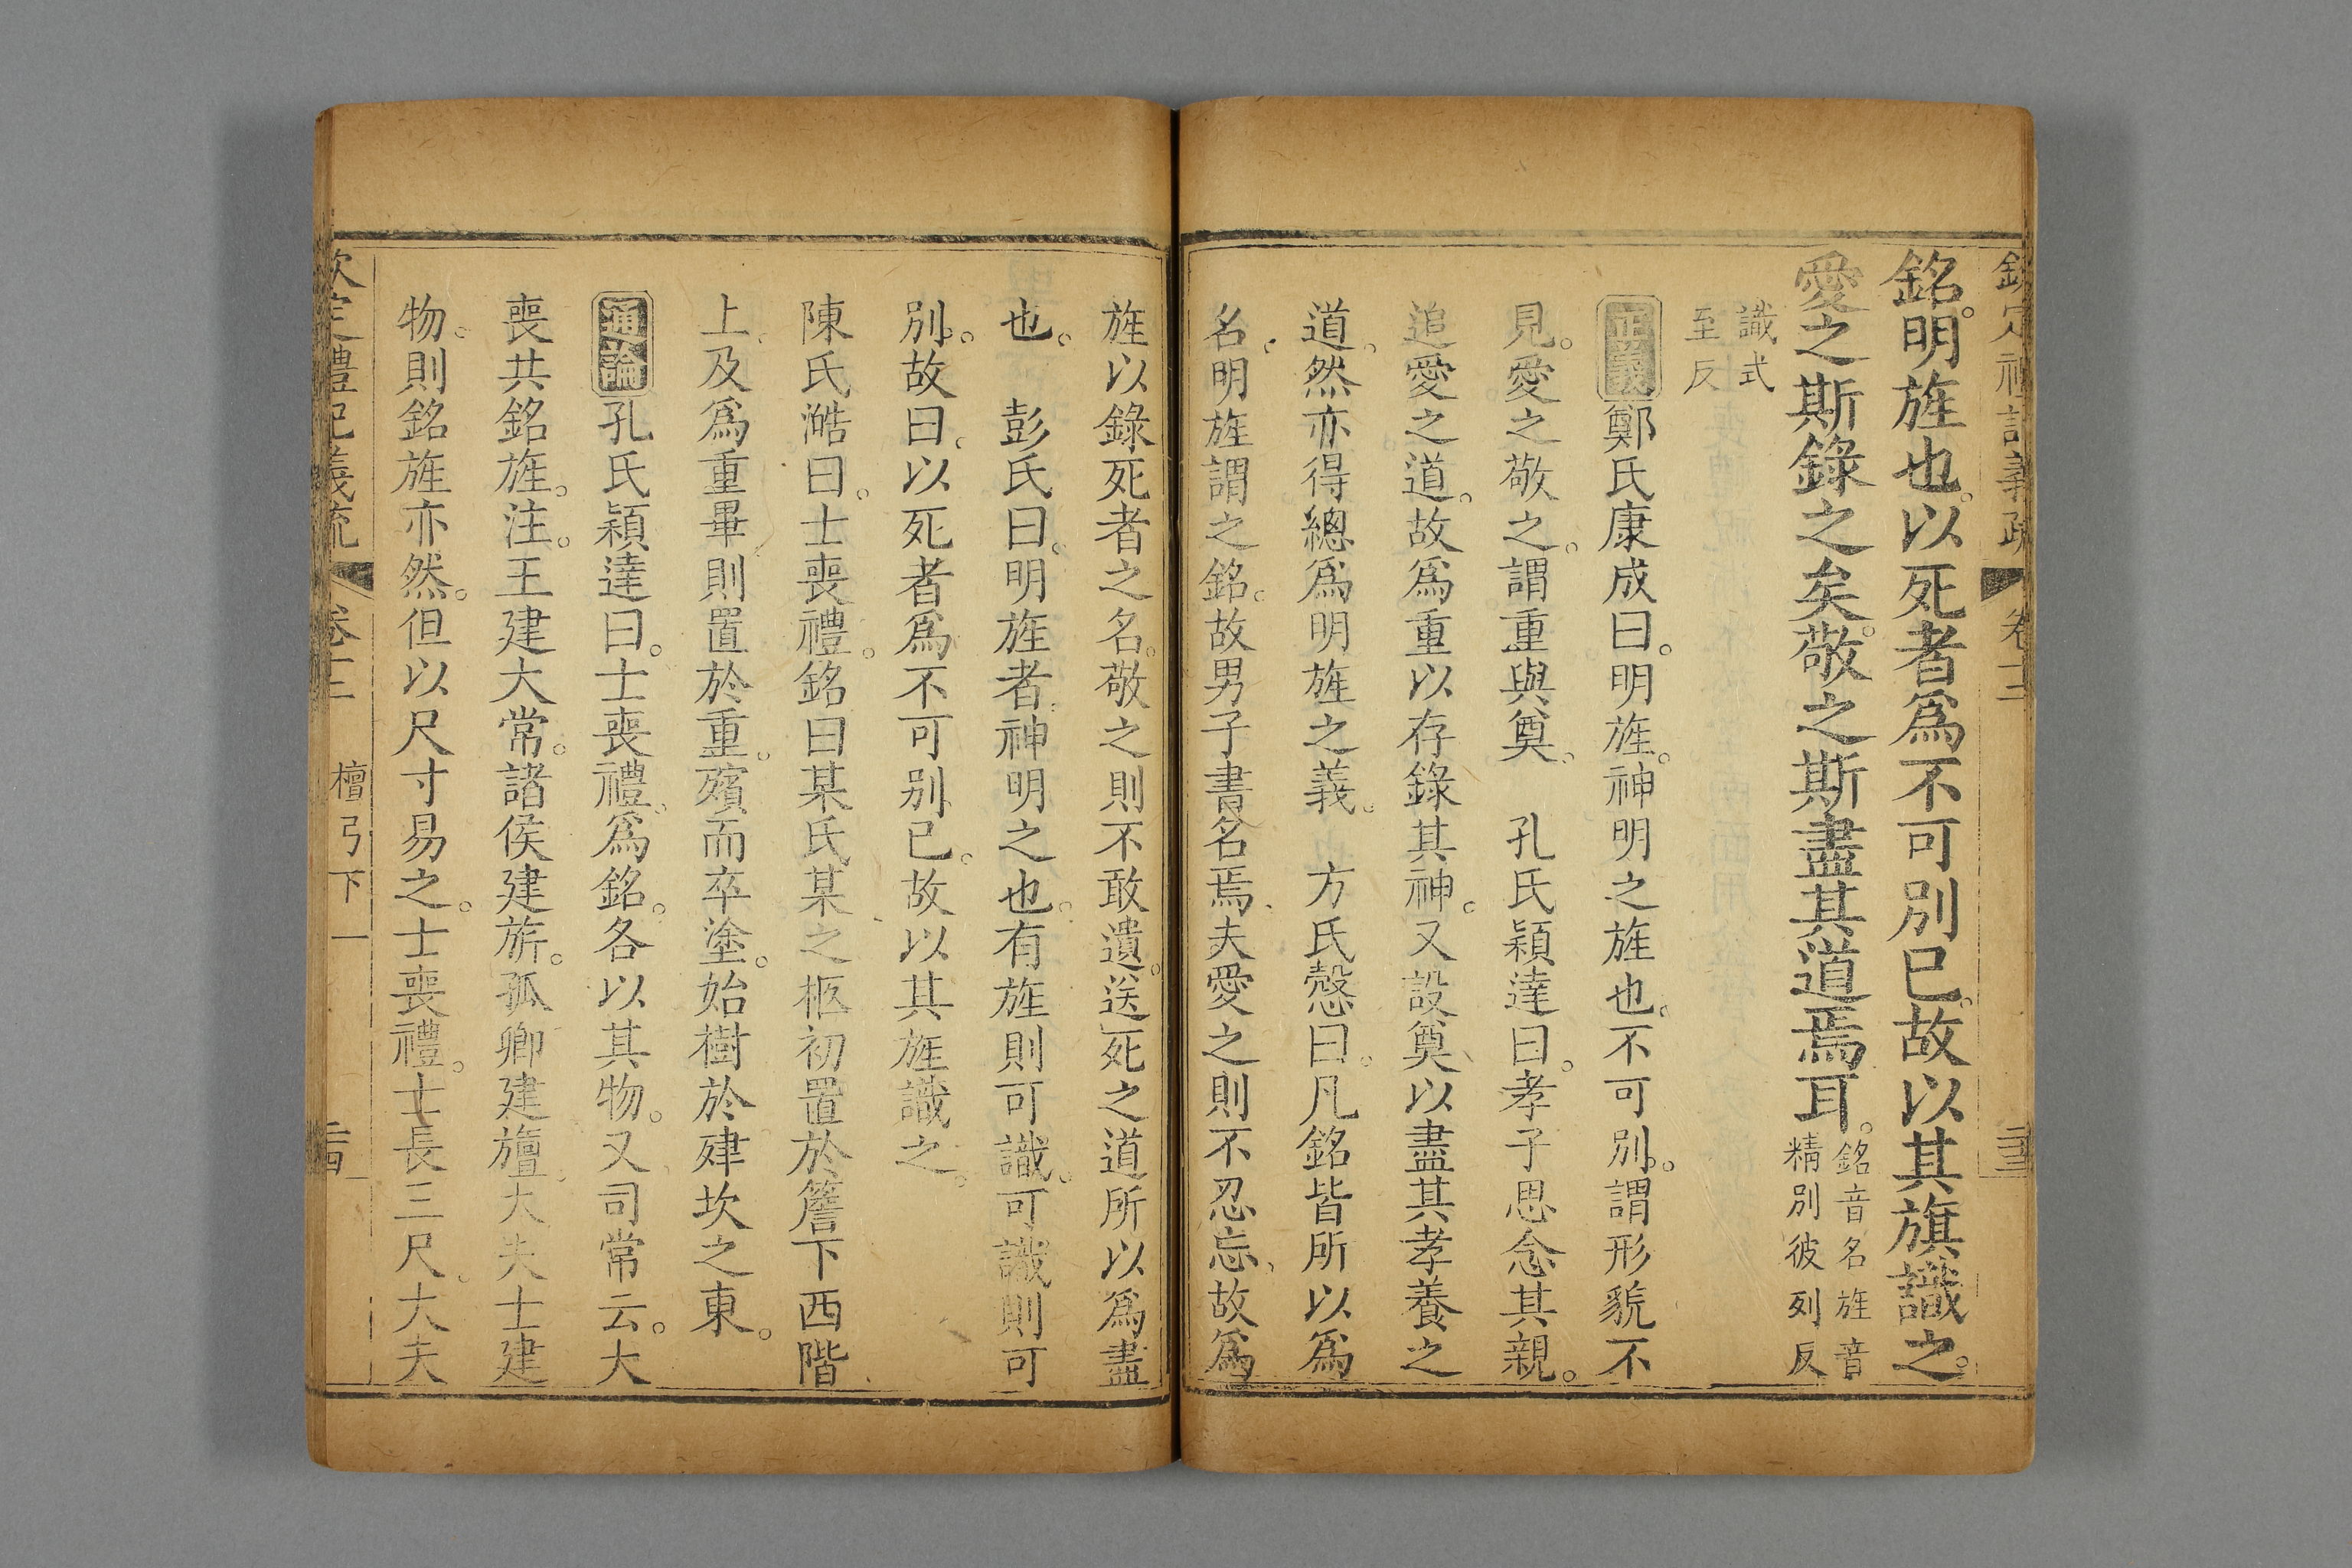 欽定禮記義疏 卷十三
銘。明旌也。以死者爲不可別已。故以其旗識之。
愛之斯錄之矣。敬之斯盡其道焉耳。
銘音名旌音
精別彼列反
識式
至反
正義鄭氏康成曰。明旌。神明之旌也。不可別。謂形貌不
見。愛之敬之。謂重與奠。 孔氏穎達曰。孝子思念其親。
追愛之道。故爲重以存錄其神。又設奠、以盡其孝養之
道。然亦得總爲明旌之義。 方氏慤曰。凡銘皆所以爲
名、明旌謂之銘。故男子書名焉、夫愛之則不忍忘、故爲
旌以錄死者之名。敬之則不敢遺。送死之道所以爲盡
也。 彭氏曰。明旌者、神明之也。有旌則可識。可識則可
別。故曰。以死者爲不可別已。故以其旌識之。
陳氏澔曰。士喪禮。銘曰某氏某之柩。初置於簷下西階
上、及爲重畢、則置於重。殯而卒塗。始樹於肂坎之東。
通論孔氏穎達曰。士喪禮。爲銘。各以其物。又司常云。大
喪共銘旌。注。王建大常。諸侯建旂。孤卿建旜。大夫士建
物。則銘旌亦然。但以尺寸易之。士喪禮。士長三尺。大夫
欽定禮記義疏 卷十三 檀弓下一